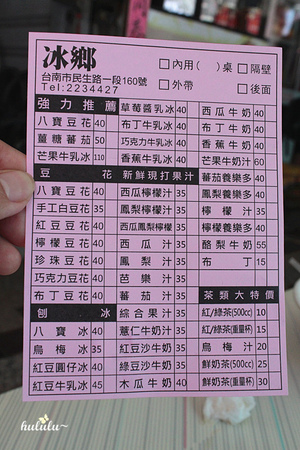 冰鄉
□內用( )桌 □隔壁
□外帶 □後面
台南市民生路一段160號
Tel:2234427
強力推薦
八寶豆花 40
薑糖蕃茄 50
芒果牛乳冰 110
豆花
八寶豆花 40
手工白豆花 35
紅豆豆花 40
檸檬豆花 40
珍珠豆花 40
巧克力豆花 40
布丁豆花 40
刨冰
八寶冰 40
烏梅冰 35
紅豆圓仔冰 40
紅豆牛乳冰 45
草莓醬乳冰 40
布丁牛乳冰 40
巧克力牛乳冰 40
香蕉牛乳冰 40
新鮮現打果汁
西瓜檸檬汁 35
鳳梨檸檬汁 35
西瓜鳳梨檸檬 35
西瓜汁 35
鳳梨汁 35
芭樂汁 35
蕃茄汁 35
綜合果汁 35
薏仁牛奶汁 35
紅豆沙牛奶 35
綠豆沙牛奶 35
木瓜牛奶 40
西瓜牛奶 40
布丁牛奶 40
香蕉牛奶 40
芒果牛奶汁 60
蕃茄養樂多 40
鳳梨養樂多 40
檸檬汁 35
酪梨牛奶 55
布丁 15
茶類大特價
紅/綠茶(500cc) 10
紅/綠茶(重量杯) 15
烏梅汁 20
鮮奶茶(500cc) 25
鮮奶茶(重量杯) 30
hululu~